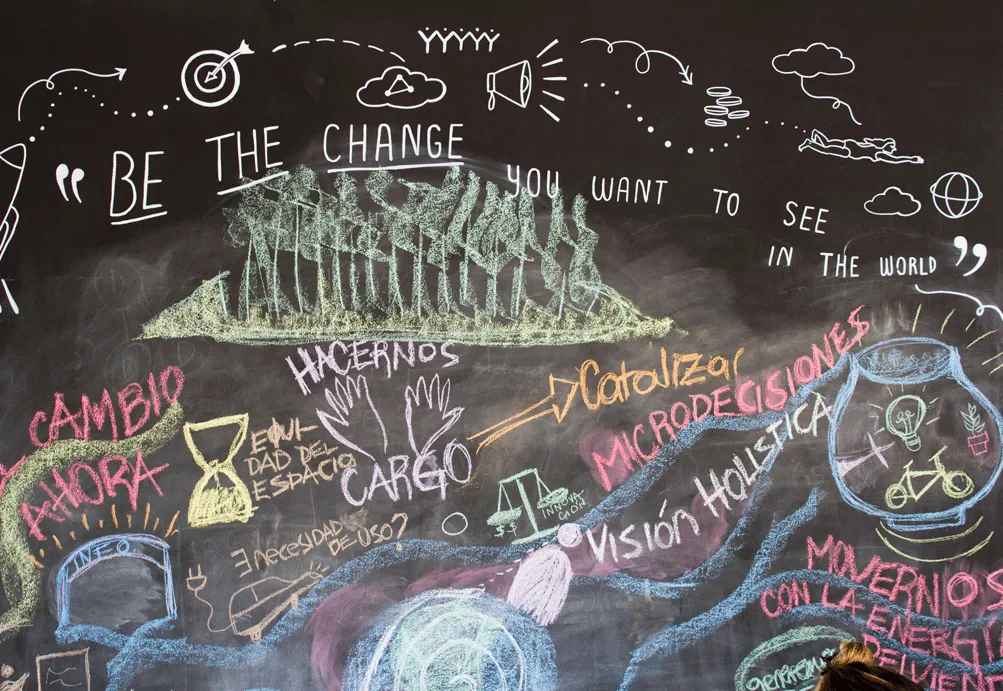 “ BE THE CHANGE
YOU WANT TO SEE
IN THE WORLD ”
HACERNOS
CARGO
CAMBIO
AHORA
EQUI-
DAD DEL
ESPACIO
Catalizar
MICRODECISIONES
VISIÓN HOLISTICA
INNOVA
CION
$ $
NECESIDAD
DE USO?
MOVERNOS
CON LA ENERGÍA
DEL VIENTO